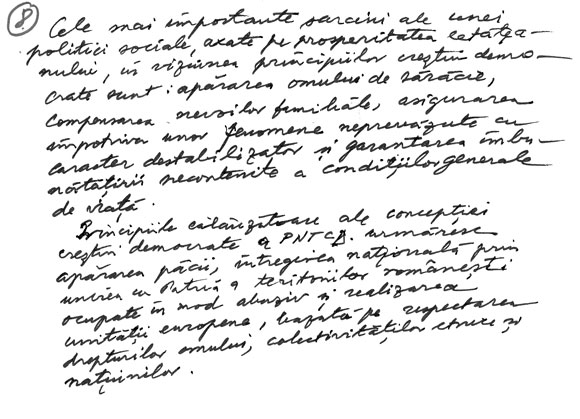 8
Cele mai importante sarcini ale unei
politici sociale, axate pe prosperitatea cetățea-
nului, în viziunea principiilor creștin demo-
crate sunt: apărarea omului de sărăcie,
compensarea nevoilor familiale, asigurarea
împotriva unor fenomene neprevăzute cu
caracter destabilizator și garantarea îmbu-
nătățirii necontenite a condițiilor generale
de viață.
Principiile călăuzitoare ale concepției
creștin democrate a PNTCD. urmăresc
apărarea păcii, întregirea națională prin
unirea cu Patria a teritoriilor românești
ocupate în mod abuziv și realizarea
unității europene, bazată pe respectarea
drepturilor omului, colectivităților etnice și
națiunilor.